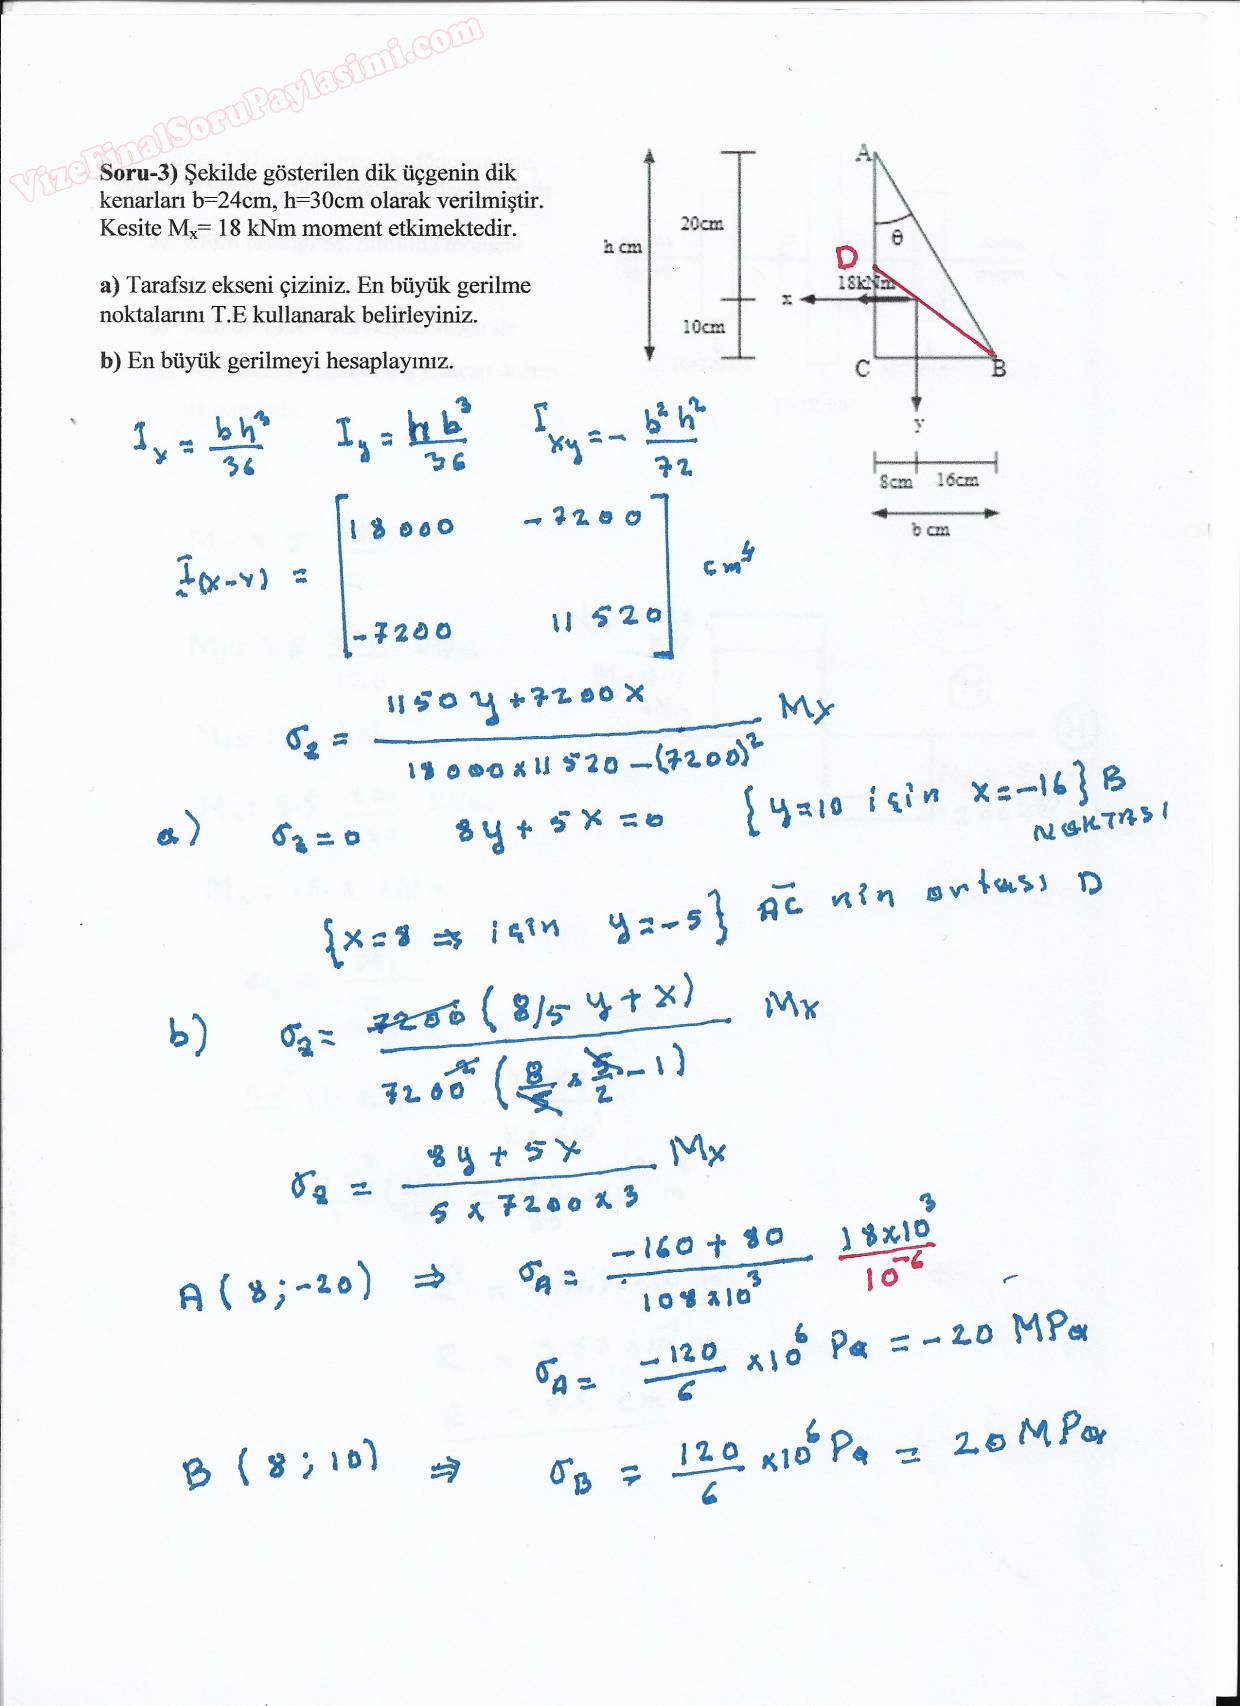 VizeFinalSoruPaylasimi.com
Soru-3) Şekilde gösterilen dik üçgenin dik
kenarları b=24cm, h=30cm olarak verilmiştir.
Kesite Mx= 18 kNm moment etkimektedir.
a) Tarafsız ekseni çiziniz. En büyük gerilme
noktalarını T.E kullanarak belirleyiniz.
b) En büyük gerilmeyi hesaplayınız.
h cm
20cm
10cm
A
θ
D
18kNm
x
C
B
y
8cm 16cm
b cm
I_x = bh³/36 I_y = hb³/36 I_xy = - b²h²/72
I(x-y) = [18000 -7200
-7200 11520] cm⁴
σ_z = (1150y+7200x)/(18000x11520-(7200)²) Mx
a) σ_z=0 8y+5x=0 {y=10 için x=-16} B
NOKTASI
{x=8 ⇒ için y=-5} AC nin ortası D
b) σ_z = 7200(8/5 y+x)/7200²(8/5 x 5/2 -1) Mx
σ_z = (8y+5x)/(5x7200x3) Mx
A(8;-20) ⇒ σ_A = (-160+80)/(108x10³) 18x10³/10⁻⁶
σ_A = -120/6 x10⁶ Pa = -20 MPa
B(8;10) ⇒ σ_B = 120/6 x10⁶ Pa = 20 MPa